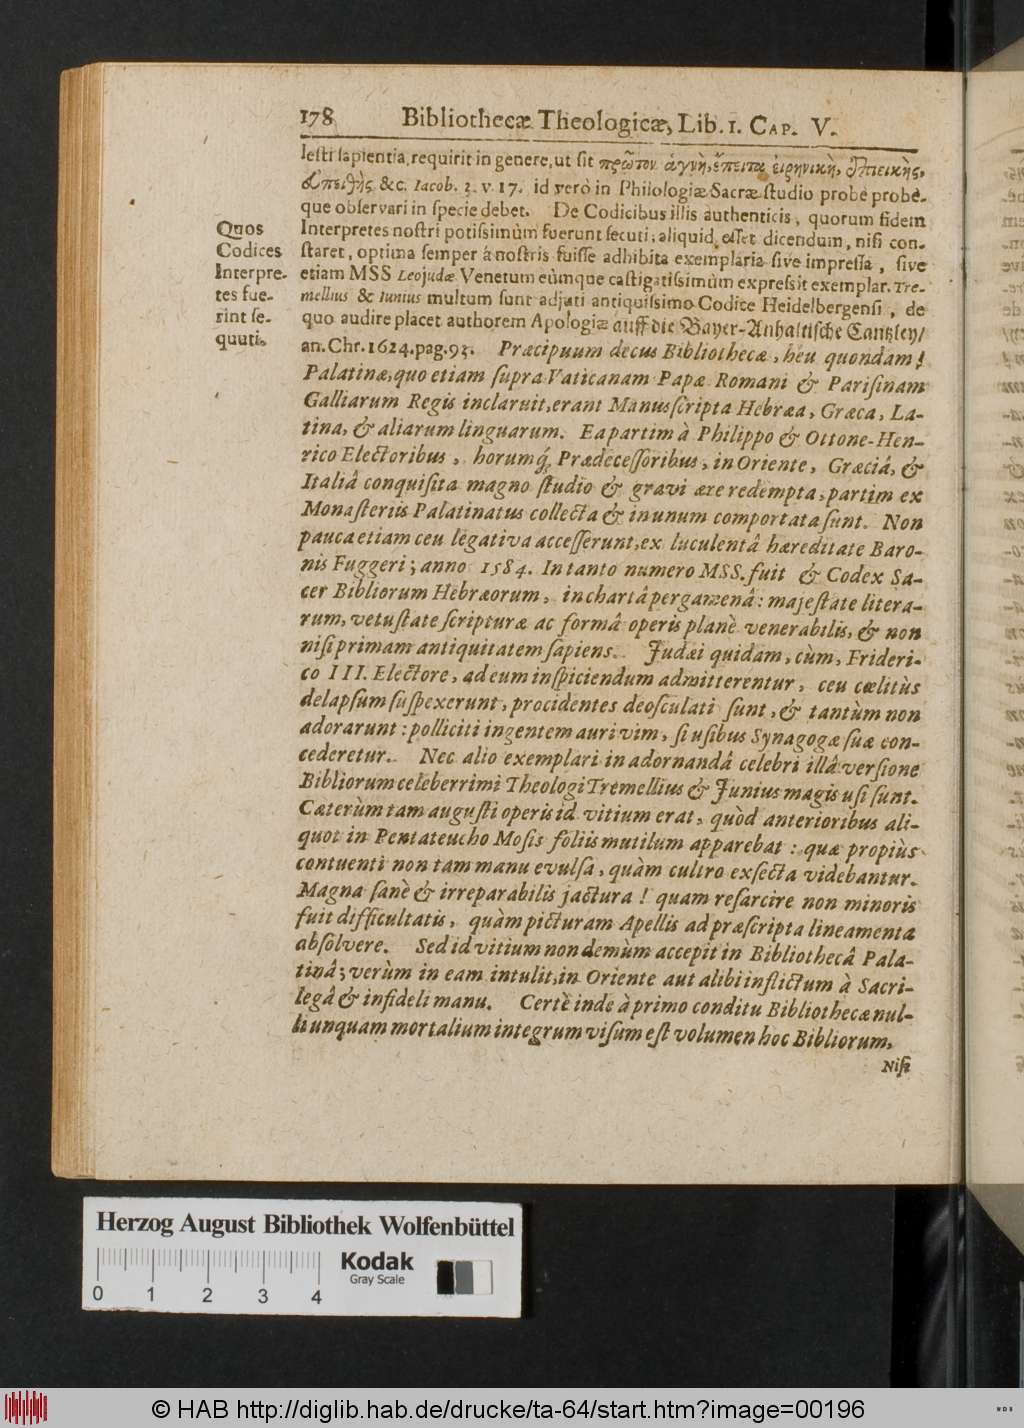 178 Bibliothecæ Theologicæ, Lib. 1. CAP. V.
lesti sapientia, requirit in genere, ut sit πρῶτον ἁγνὴ, ἔπειτα εἰρηνικὴ, ἐπιεικὴς,
εὐπειθὴς &c. Iacob. 3. v. 17. id verò in Philologiæ Sacræ studio probè probè-
que observari in specie debet. De Codicibus illis authenticis, quorum fidem
Quos
Codices
Interpre-
tes fue-
rint se-
quuti.
Interpretes nostri potissimùm fuerunt secuti, aliquid esset dicendum, nisi con-
staret, optima semper à nostris fuisse adhibita exemplaria sive impressa, sive
etiam MSS Leojudæ Venetum eùmque castigatissimùm expressit exemplar. Tre-
mellius & Iunius multum sunt adjuti antiquissimo Codice Heidelbergensi, de
quo audire placet authorem Apologiæ auff die Bayer-Anhaltische Cantzley/
an. Chr. 1624. pag. 93. Præcipuum decus Bibliothecæ, heu quondam!
Palatinæ, quo etiam supra Vaticanam Papæ Romani & Parisinam
Galliarum Regis inclaruit, erant Manuscripta Hebræa, Græca, La-
tina, & aliarum linguarum. Ea partim à Philippo & Ottone-Hen-
rico Electoribus, horumq́; Prædecessoribus, in Oriente, Græciâ, &
Italiâ conquisita magno studio & gravi ære redempta, partim ex
Monasteriis Palatinatus collecta & in unum comportata sunt. Non
pauca etiam ceu legativa accesserunt, ex luculentâ hæreditate Baro-
nis Fuggeri; anno 1584. In tanto numero MSS. fuit & Codex Sa-
cer Bibliorum Hebræorum, in chartâ pergamenâ: majestate litera-
rum, vetustate scripturæ ac formâ operis planè venerabilis, & non
nisi primam antiquitatem sapiens. Judæi quidam, cùm, Frideri-
co III. Electore, ad eum inspiciendum admitterentur, ceu cœlitùs
delapsum suspexerunt, procidentes deosculati sunt, & tantùm non
adorarunt: polliciti ingentem auri vim, si usibus Synagogæ suæ con-
cederetur. Nec alio exemplari in adornandâ celebri illâ versione
Bibliorum celeberrimi Theologi Tremellius & Junius magis usi sunt.
Cæterùm tam augusti operis id vitium erat, quòd anterioribus ali-
quot in Pentateucho Mosis foliis mutilum apparebat: quæ propiùs
contuenti non tam manu evulsa, quàm cultro exsecta videbantur.
Magna sanè & irreparabilis jactura! quam resarcire non minoris
fuit difficultatis, quàm picturam Apellis ad præscripta lineamenta
absolvere. Sed id vitium non demùm accepit in Bibliothecâ Pala-
tinâ; verùm in eam intulit, in Oriente aut alibi inflictum à Sacri-
legâ & infideli manu. Certè inde à primo conditu Bibliothecæ nul-
li unquam mortalium integrum visum est volumen hoc Bibliorum,
Nisi
Herzog August Bibliothek Wolfenbüttel
Kodak
Gray Scale
0 1 2 3 4
© HAB http://diglib.hab.de/drucke/ta-64/start.htm?image=00196